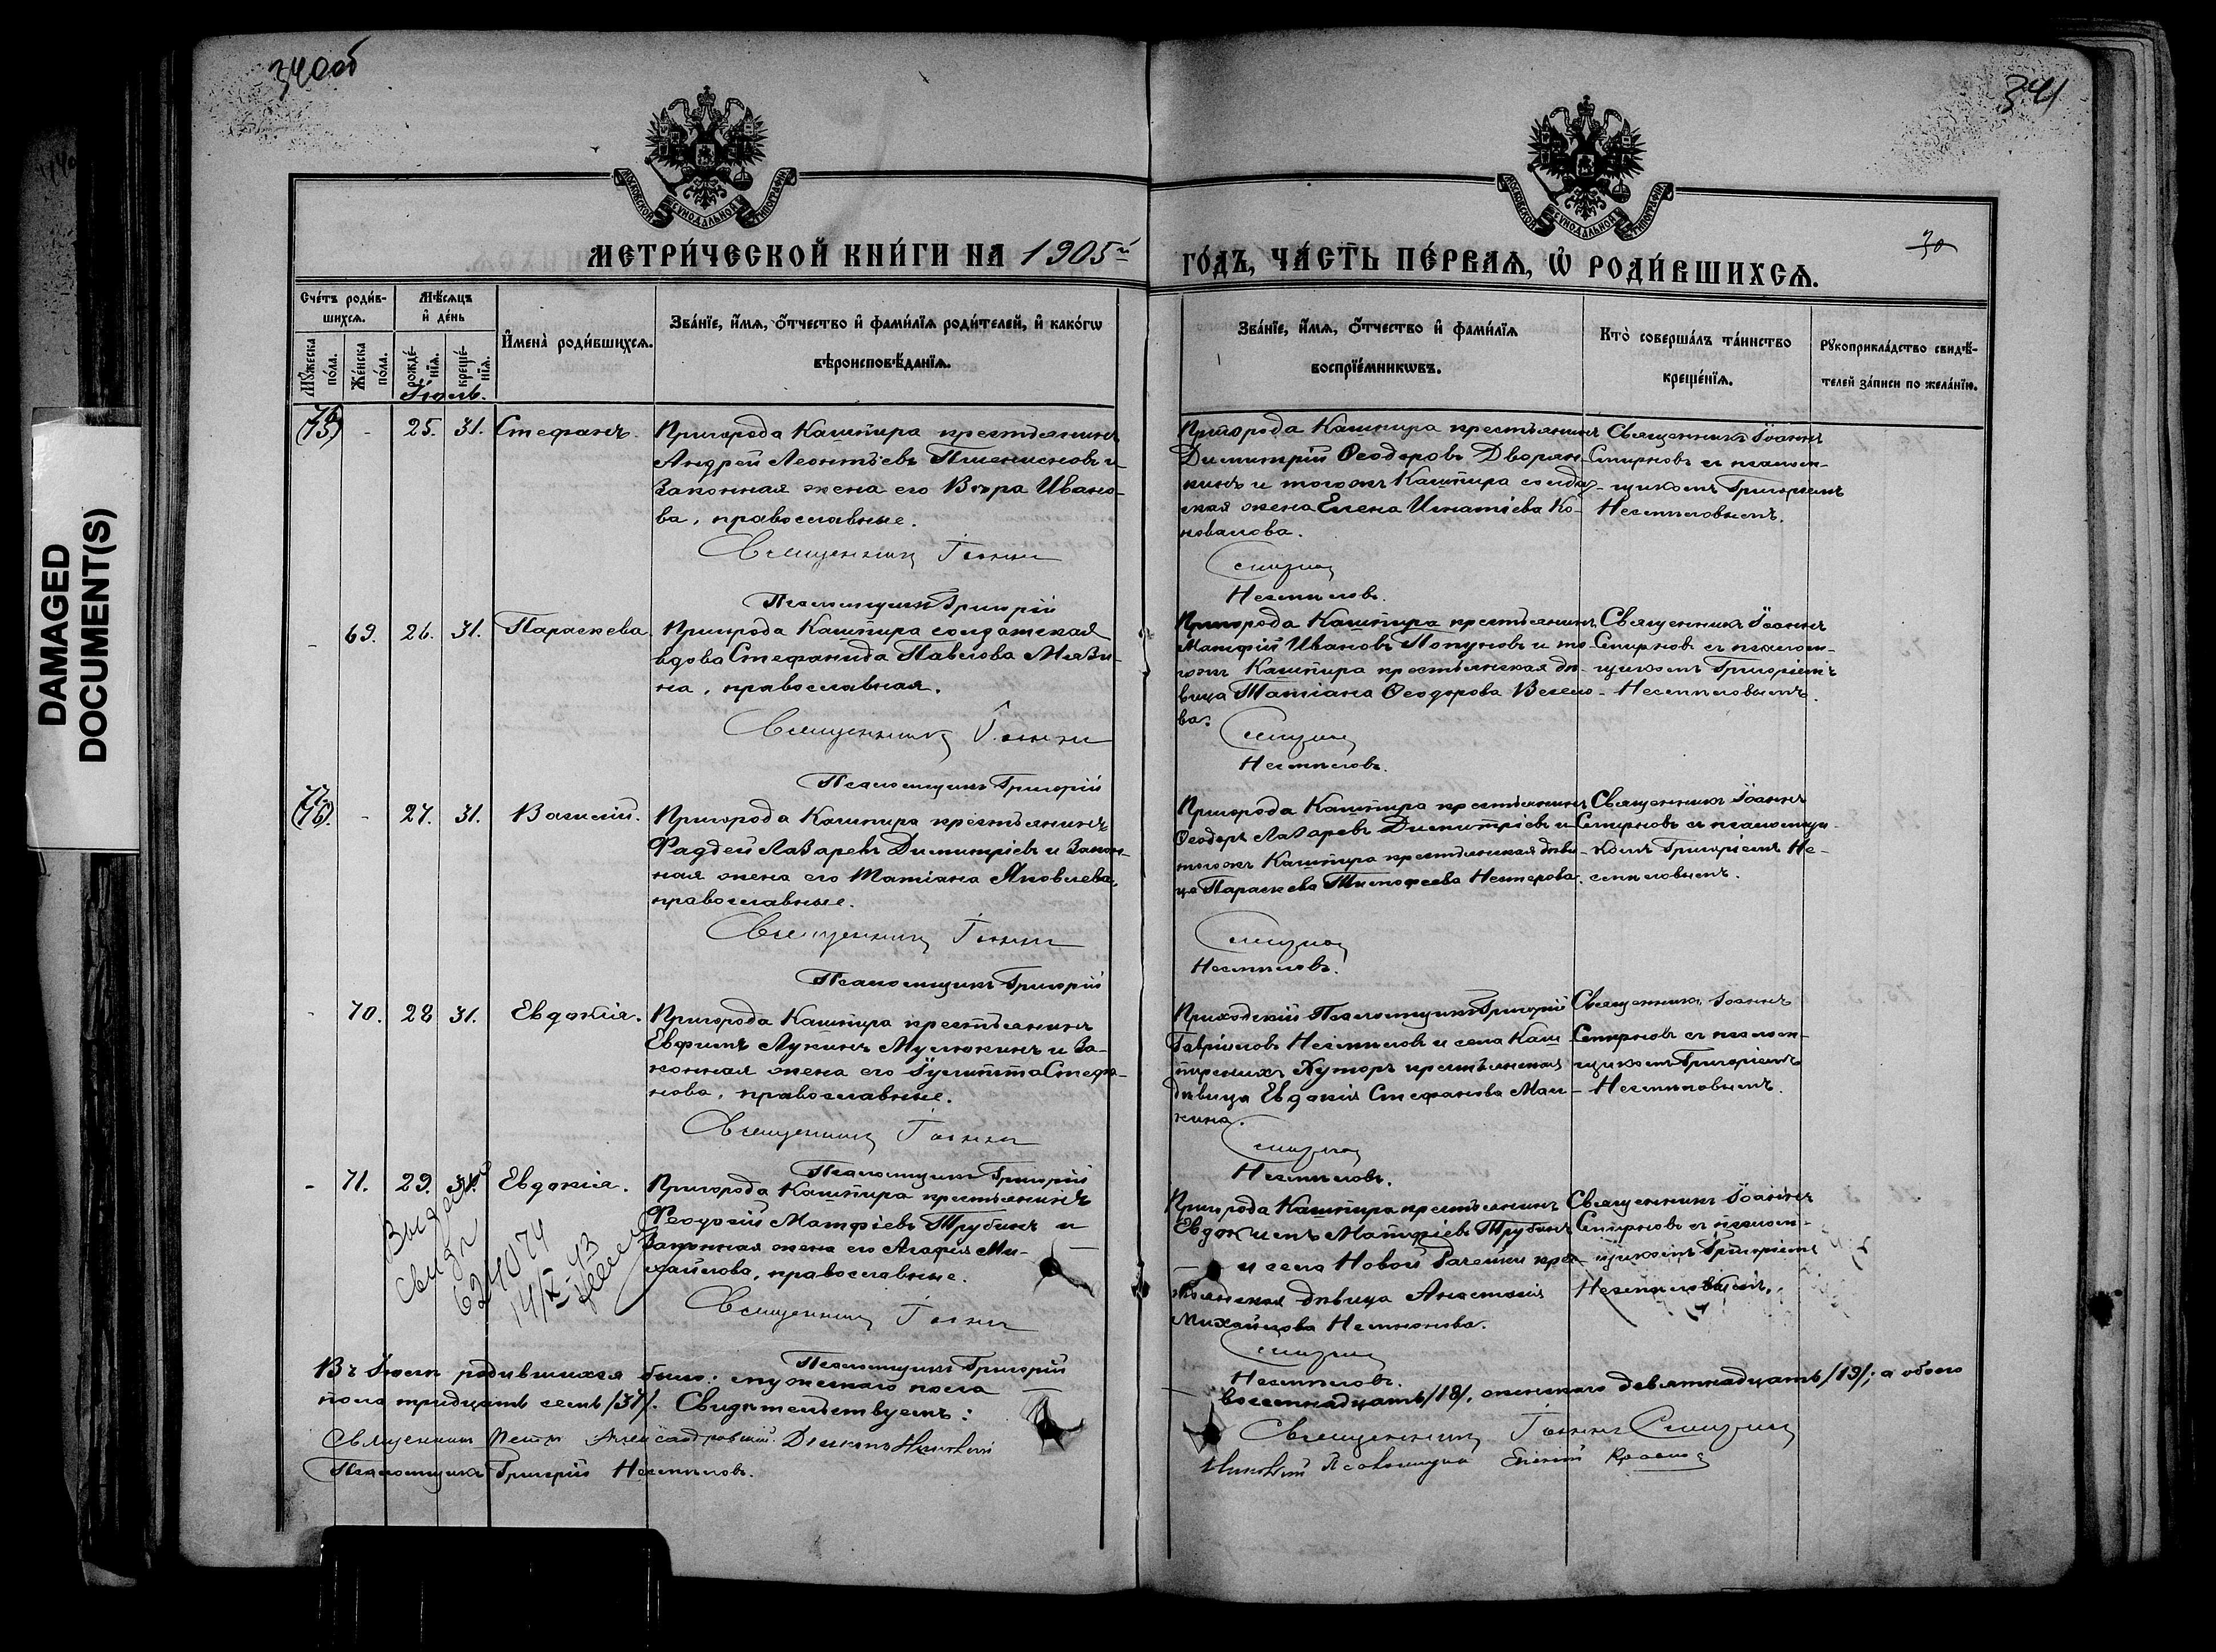 340об
341
30
DAMAGED
DOCUMENT(S)
МОСКОВСКОЙ СѴНОДАЛЬНОЙ ТИПОГРАФІИ
МОСКОВСКОЙ СѴНОДАЛЬНОЙ ТИПОГРАФІИ
МЕТРИ́ЧЕСКОЙ КНИ́ГИ НА 1905й
ГО́ДЪ, ЧА́СТЬ ПЕ́РВАѦ, Ѡ҆ РОДИ́ВШИХСѦ.
Сче́тъ роди́в-
шихсѧ.
Мѣ́сѧцъ
и҆ де́нь
Мꙋ́жеска
по́ла.
Же́нска
по́ла.
рожде́-
нїѧ.
креще́-
нїѧ.
И҆мена̀ роди́вшихсѧ.
Зва́нїе, и҆́мѧ, ѻ҆́тчество и҆ фами́лїѧ роди́телей, и҆ како́гѡ
вѣроисповѣ́данїѧ.
Зва́нїе, и҆́мѧ, ѻ҆́тчество и҆ фами́лїѧ
воспрїе́мникѡвъ.
Кто̀ соверша́лъ та́инство
креще́нїѧ.
Рꙋкоприкла́дство свидѣ́-
телей за́писи по жела́нїю.
Іюль.
76
(75) - 25. 31. Стефанъ.
Пригорода Кашпира крестьянинъ
Андрей Леонтьевъ и
законная жена его Вѣра Ивано-
ва, православные.
Священникъ Іоаннъ
Псаломщикъ Григорій
Пригорода Кашпира крестьянинъ
Димитрій Ѳеодоровъ Дворян-
кинъ и тогожъ Кашпира солдат-
ская жена Елена Игнатіева Ко-
новалова.
Смирнов
Несмѣловъ.
Священникъ Іоаннъ
Смирновъ съ псалом-
щикомъ Григоріемъ
Несмѣловымъ.
- 69. 26. 31. Параскева.
Пригорода Кашпира солдатская
вдова Стефанида Павлова Мязи-
на, православная.
Священникъ Іоаннъ
Псаломщикъ Григорій
Пригорода Кашпира крестьянинъ
Матфій Ивановъ и то-
гожъ Кашпира крестьянская дѣ-
вица Татіана Ѳеодорова Весело-
ва.
Смирнов
Несмѣловъ.
Священникъ Іоаннъ
Смирновъ съ псалом-
щикомъ Григоріемъ
Несмѣловымъ.
77.
(76). - 27. 31. Василій.
Пригорода Кашпира крестьянинъ
Фаддей Лазаревъ Димитріевъ и закон-
ная жена его Татіана Яковлева,
православные.
Священникъ Іоаннъ
Псаломщикъ Григорій
Пригорода Кашпира крестьянинъ
Ѳеодоръ Лазаревъ Димитріевъ и
тогожъ Кашпира крестьянская дѣви-
ца Параскева Тимофеева Нестерова.
Смирнов
Несмѣловъ.
Священникъ Іоаннъ
Смирновъ съ псаломщи-
комъ Григоріемъ Не-
смѣловымъ.
- 70. 28 31. Евдокія.
Пригорода Кашпира крестьянинъ
Евфимъ Лукинъ Мулюкинъ и за-
конная жена его Іулитта Стефа-
нова, православные.
Священникъ Іоаннъ
Псаломщикъ Григорій
Приходскій Псаломщикъ Григорій
Гавріиловъ Несмѣловъ и села Каш-
пирскихъ Хуторъ крестьянская
дѣвица Евдокія Стефанова Маш-
кина.
Смирнов
Несмѣловъ.
Священникъ Іоаннъ
Смирновъ съ псалом-
щикомъ Григоріемъ
Несмѣловымъ.
- 71. 29. 31. Евдокія.
Пригорода Кашпира крестьянинъ
Феодосій Матфіевъ Трубинъ и
законная жена его Агафія Ми-
хайлова, православные.
Священникъ Іоаннъ
Псаломщикъ Григорій
Пригорода Кашпира крестьянинъ
Евдокимъ Матфіевъ Трубинъ
и села Новой Рачейки кре-
стьянская дѣвица Анастасія
Михайлова
Смирнов
Несмѣловъ.
Священникъ Іоаннъ
Смирновъ съ псалом-
щикомъ Григоріемъ
Несмѣловымъ.
Выдано
свид.
624074
14/X-43
Въ Іюлѣ родившихся было: мужескаго пола восемнадцать /18/, женскаго девятнадцать /19/; а обоего
пола тридцать семь /37/. Свидѣтельствуемъ:
Священникъ Іоаннъ Смирнов
Священникъ Петръ Александровскій. Діаконъ Николай
Псаломщикъ Григорій Несмѣловъ.